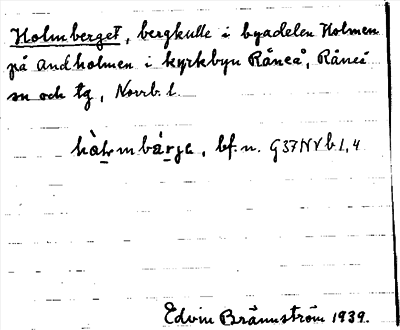 Holmberget, bergkulle i byadelen Holmen
på Andholmen i kyrkbyn Råneå, Råneå
sn och tg, Norrb. l.
hàlmbárje, bf. n. G 37 N V b 1, 4
Edvin Brännström 1939.